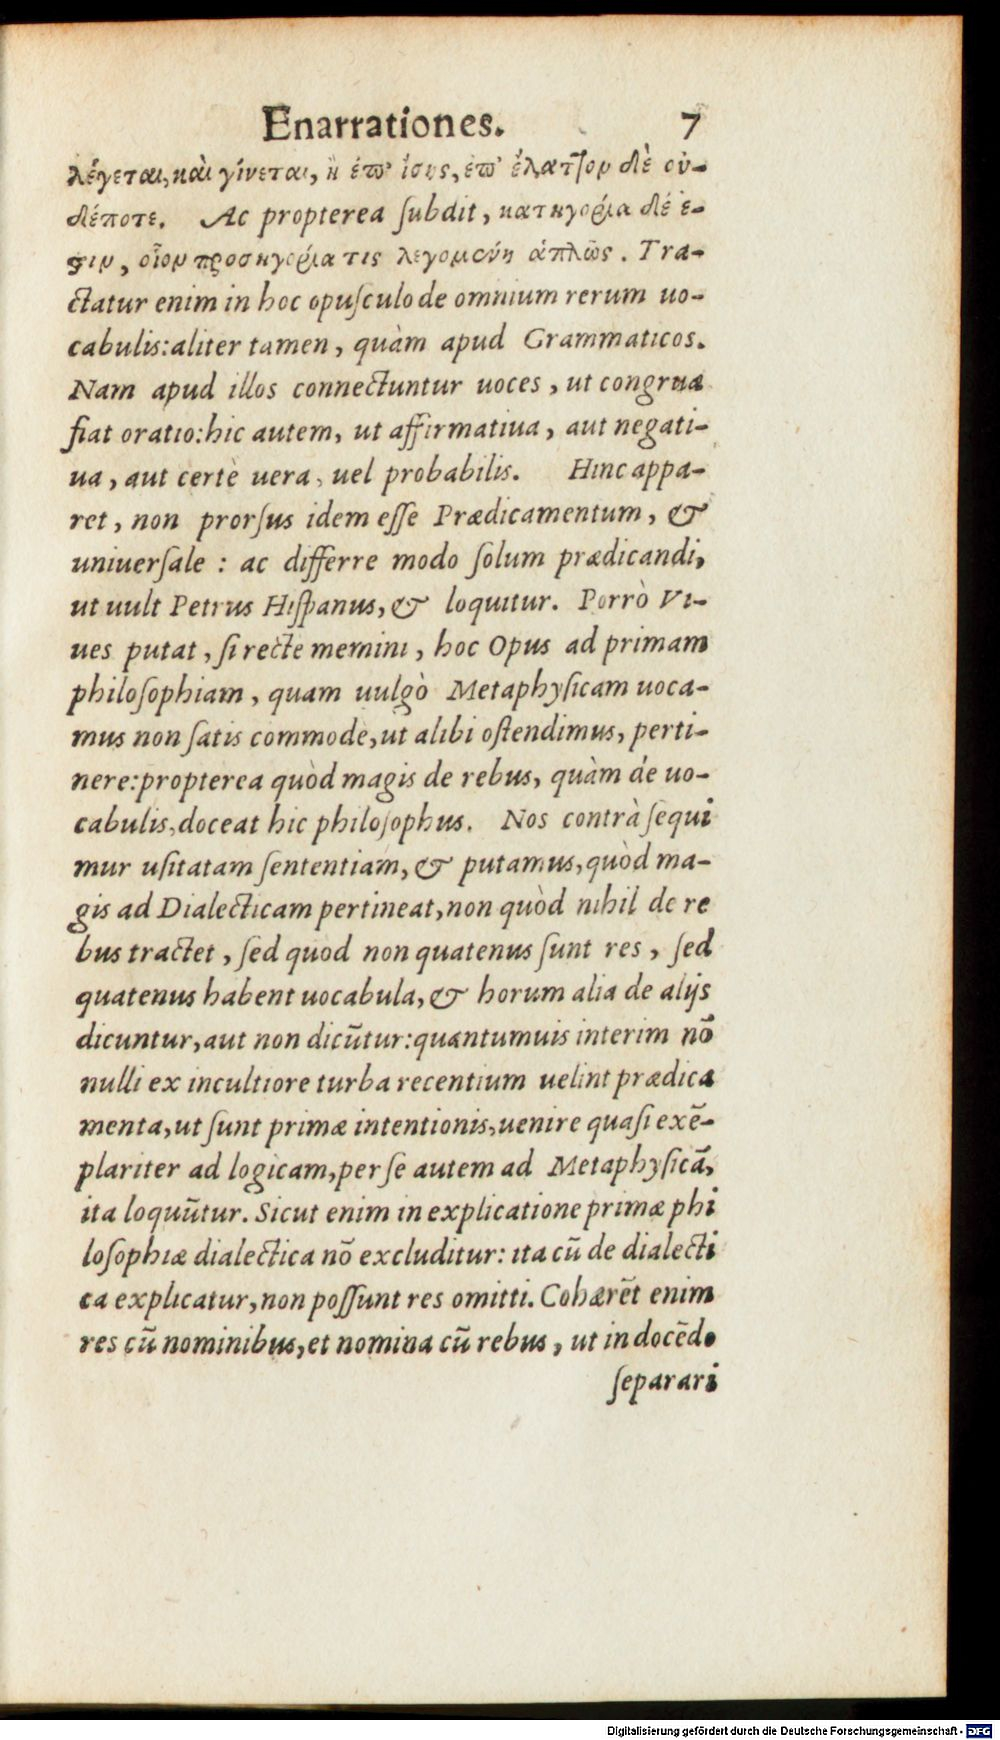 Enarrationes. 7
λέγεται, καὶ γίνεται, ἢ ἐπ' ἴσης, ἐπ' ἔλαττον δὲ οὐ-
δέποτε. Ac propterea ſubdit, κατηγορία δέ ἐ-
στιν, οἷον προσηγορία τις λεγομένη ἁπλῶς. Tra-
ctatur enim in hoc opuſculo de omnium rerum uo-
cabulis: aliter tamen, quàm apud Grammaticos.
Nam apud illos connectuntur uoces, ut congrua
fiat oratio: hic autem, ut affirmatiua, aut negati-
ua, aut certè uera, uel probabilis. Hinc appa-
ret, non prorſus idem eſſe Prædicamentum, &
uniuerſale : ac differre modo ſolum prædicandi,
ut uult Petrus Hiſpanus, & loquitur. Porrò Vi-
ues putat, ſi recte memini, hoc Opus ad primam
philoſophiam, quam uulgò Metaphyſicam uoca-
mus non ſatis commodè, ut alibi oſtendimus, perti-
nere: propterea quòd magis de rebus, quàm de uo-
cabulis, doceat hic philoſophus. Nos contrà ſequi
mur uſitatam ſententiam, & putamus, quòd ma-
gis ad Dialecticam pertineat, non quòd nihil de re
bus tractet, ſed quod non quatenus ſunt res, ſed
quatenus habent uocabula, & horum alia de alijs
dicuntur, aut non dicūtur: quantumuis interim nō
nulli ex incultiore turba recentium uelint prædica
menta, ut ſunt primæ intentionis, uenire quaſi exē-
plariter ad logicam, per ſe autem ad Metaphyſicā,
ita loquūtur. Sicut enim in explicatione primæ phi
loſophiæ dialectica nō excluditur: ita cū de dialecti
ca explicatur, non poſſunt res omitti. Cohærēt enim
res cū nominibus, et nomina cū rebus, ut in docēdo
ſeparari
Digitalisierung gefördert durch die Deutsche Forschungsgemeinschaft - DFG